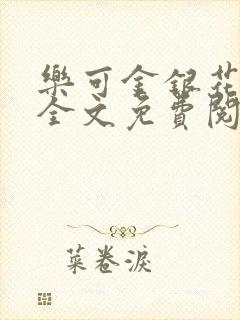 樂可金銀花
全文免費閱
菜卷淚